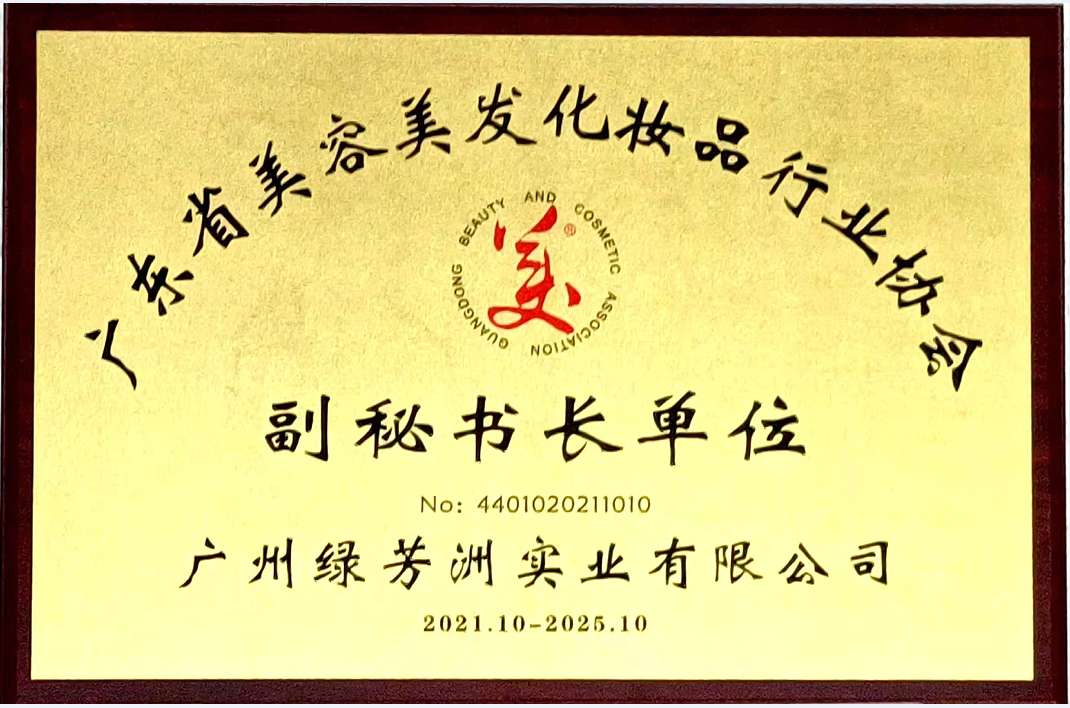 广东省美容美发化妆品行业协会
GUANGDONG BEAUTY AND COSMETIC ASSOCIATION
美®
副秘书长单位
No: 4401020211010
广州绿芳洲实业有限公司
2021.10-2025.10